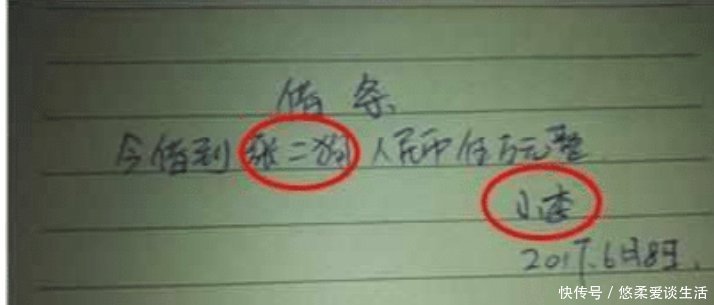 借条
今借到张二狗人民币伍万元整
小李
2017.6月8日.
快传号/悠柔爱谈生活